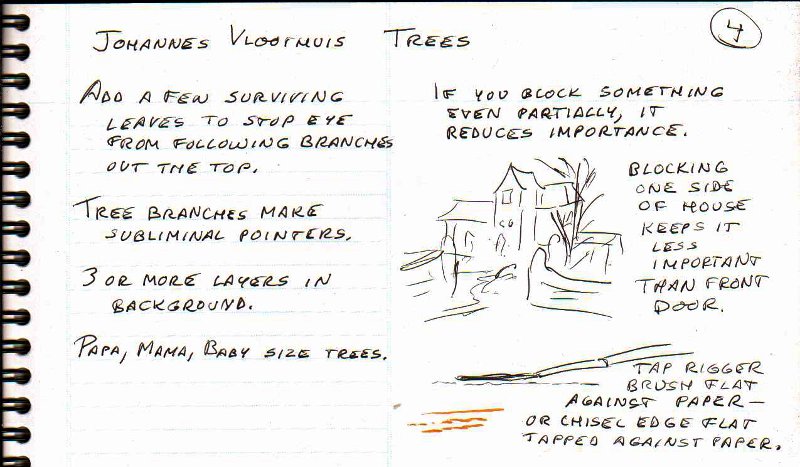 JOHANNES VLOOTHUIS TREES
4
ADD A FEW SURVIVING
LEAVES TO STOP EYE
FROM FOLLOWING BRANCHES
OUT THE TOP.
TREE BRANCHES MAKE
SUBLIMINAL POINTERS.
3 OR MORE LAYERS IN
BACKGROUND.
PAPA, MAMA, BABY SIZE TREES.
IF YOU BLOCK SOMETHING
EVEN PARTIALLY, IT
REDUCES IMPORTANCE.
BLOCKING
ONE SIDE
OF HOUSE
KEEPS IT
LESS
IMPORTANT
THAN FRONT
DOOR.
TAP RIGGER
BRUSH FLAT
AGAINST PAPER—
OR CHISEL EDGE FLAT
TAPPED AGAINST PAPER.